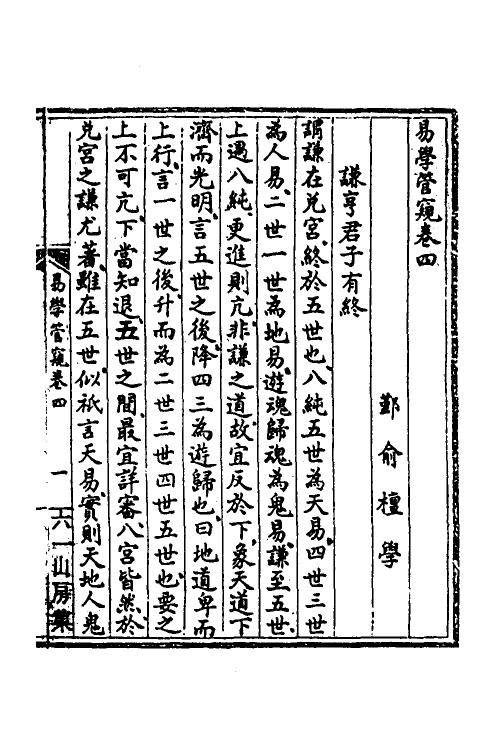 易學管窺卷四
鄞俞檀學
謙亨君子有終
謂謙在兌宮、終於五世也、八純五世為天易、四世三世
為人易、二世一世為地易、遊魂歸魂為鬼易、謙至五世、
上遇八純、更進則亢、非謙之道、故宜反於下、象天道下
濟而光明、言五世之後、降四三為遊歸也、曰地道卑而
上行、言一世之後、升而為二世三世四世五世也、要之
上不可亢、下當知退、五世之間、最宜詳審、八宮皆然、於
兌宮之謙尤著、雖在五世、似祇言天易、實則天地人鬼
易學管窺卷四 一 六一山房集